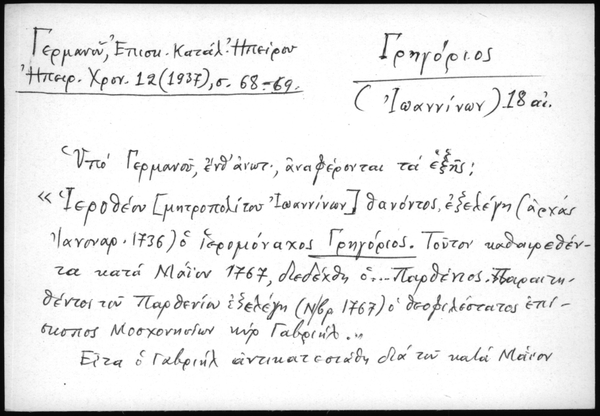 Γερμανοῦ, Ἐπισκ. Κατάλ. Ἠπείρου
Ἠπειρ. Χρον. 12 (1937), σ. 68-69.
Γρηγόριος
(Ἰωαννίνων) 18 αἰ.
Ὑπό Γερμανοῦ, ἔνθ' ἀνωτ., ἀναφέρονται τά ἑξῆς:
«Ἱεροθέου [μητροπολίτου Ἰωαννίνων] θανόντος, ἐξελέγη (ἀρχάς
Ἰανουαρ. 1736) ὁ ἱερομόναχος Γρηγόριος. Τοῦτον καθαιρεθέν-
τα κατά Μάϊον 1767, διεδέχθη ὁ... Παρθένιος. Παραιτη-
θέντος τοῦ Παρθενίου ἐξελέγη (Νβρ 1767) ὁ θεοφιλέστατος ἐπί-
σκοπος Μοσχονησίων κύρ Γαβριήλ..»
Εἶτα ὁ Γαβριήλ ἀντικατεστάθη διά τοῦ κατά Μάϊον